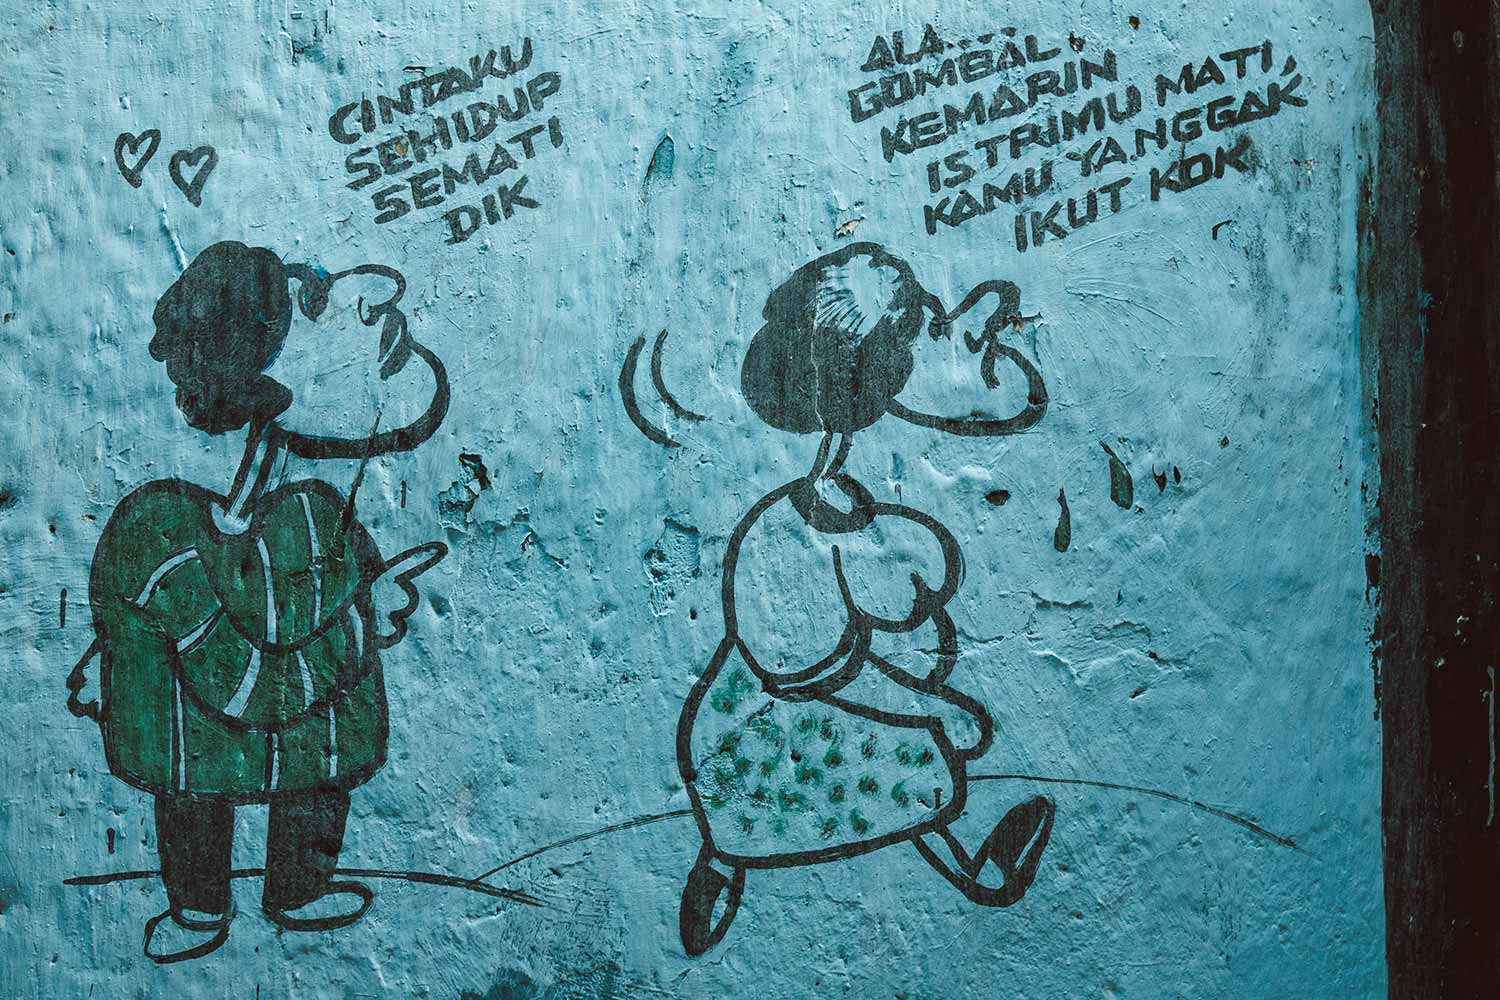 CINTAKU
SEHIDUP
SEMATI
DIK
ALA....
GOMBAL.
KEMARIN
ISTRIMU MATI,
KAMU YA NGGAK
IKUT KOK